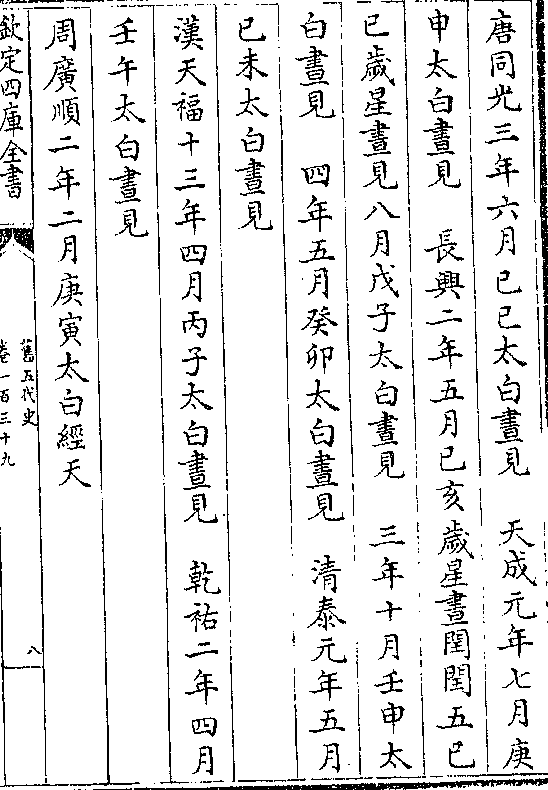 唐同光三年六月己巳太白晝見　天成元年七月庚
申太白晝見　長興二年五月己亥歲星晝閏閏五巳
巳歲星晝見八月戊子太白晝見　三年十月壬申太
白晝見　四年五月癸卯太白晝見　清泰元年五月
巳未太白晝見
漢天福十三年四月丙子太白晝見　乾祐二年四月
壬午太白晝見
周廣順二年二月庚寅太白經天
欽定四庫全書
舊五代史
卷一百三十九
八